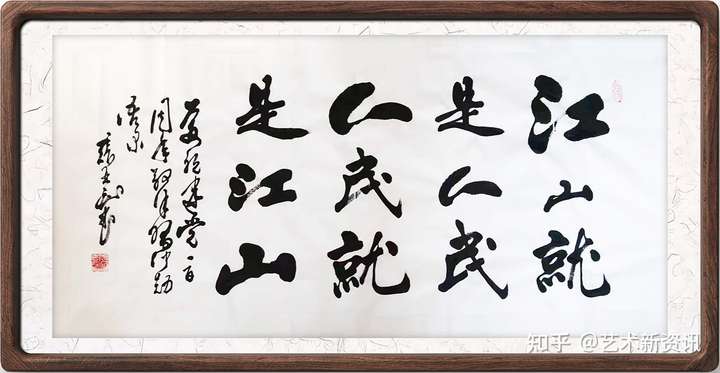 江山就
是人民
人民就
是江山
庆祝建党一百
周年
知乎 @艺术新资讯